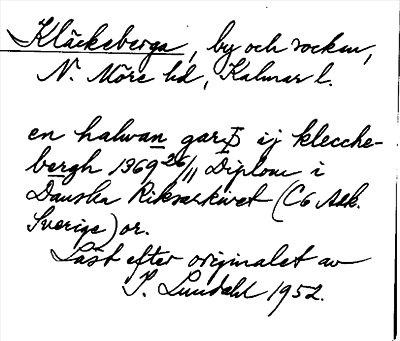 Kläckeberga, by och socken,
N. Möre hd, Kalmar l.
en halwan garþ ij klecche-
bergh 1369 26/11 Diplom i
Danska Riksarkivet (C6 Avk.
Sverige) or.
Läst efter originalet av
I. Lundahl 1952.